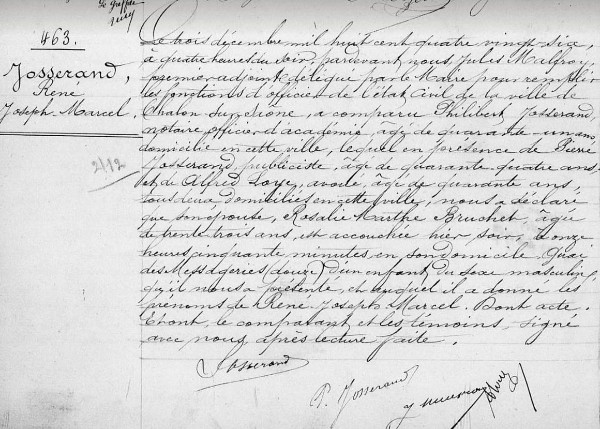 Le Greffier
463.
Josserand,
René
Joseph Marcel.
2/12
Le trois décembre mil huit cent quatre vingt-six,
à quatre heures du soir, pardevant nous, Jules Malfroy,
premier adjoint délégué par le Maire pour remplir
les fonctions d'officier de l'état civil de la ville de
Chalon-sur-Saône, a comparu Philibert Josserand,
notaire, officier d'académie, âgé de quarante-un ans,
domicilié en cette ville, lequel en présence de Pierre
Josserand, publiciste, âgé de quarante-quatre ans
et de Alfred Loye, avoué, âgé de quarante ans,
tous deux domiciliés en cette ville, nous a déclaré
que son épouse, Rosalie Marthe Bruchet, âgée
de trente-trois ans, est accouchée hier soir, à onze
heures cinquante minutes en son domicile Quai
des Messageries (douze) d'un enfant du sexe masculin,
qu'il nous a présenté, et auquel il a donné les
prénoms de René Joseph Marcel. Dont acte.
Et ont, le comparant et les témoins, signé
avec nous, après lecture faite.
Josserand
P. Josserand